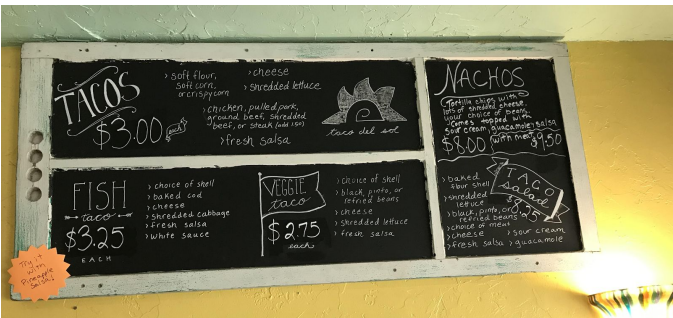 TACOS
$3.00 each
> soft flour,
soft corn,
or crispy corn
> chicken, pulled pork,
ground beef, shredded
beef, or steak (add .50)
> fresh salsa
> cheese
> shredded lettuce
taco del sol
FISH
taco
$3.25
EACH
> choice of shell
> baked cod
> cheese
> shredded cabbage
> fresh salsa
> white sauce
Try it
with
Pineapple
Salsa!
VEGGIE
taco
$2.75
each
> choice of shell
> black, pinto, or
refried beans
> cheese
> shredded lettuce
> fresh salsa
NACHOS
Tortilla chips with
lots of shredded cheese,
your choice of beans,
comes topped with
sour cream, guacamole, salsa
$8.00 (with meat $9.50
TACO
salad
$8.25
> baked
flour shell
> shredded
lettuce
> black, pinto, or
refried beans
> choice of meat
> cheese
> fresh salsa
> sour cream
> guacamole